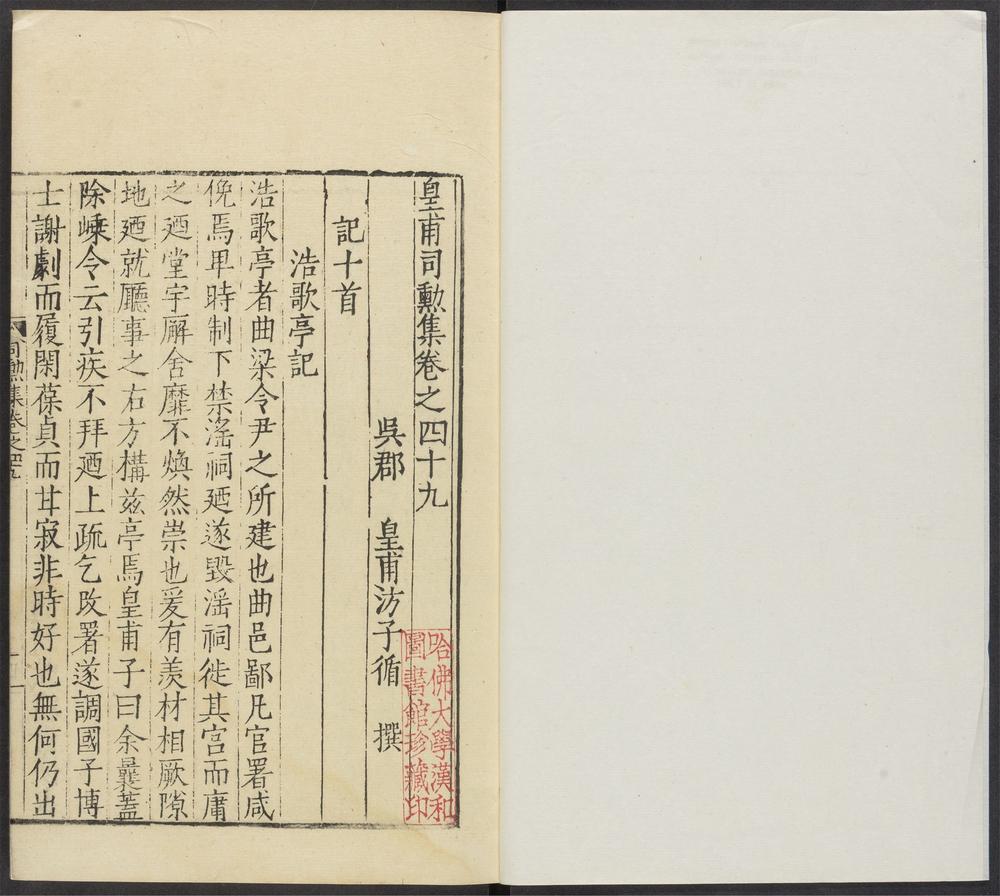 皇甫司勲集卷之四十九
吳郡 皇甫汸子循 撰
記十首
浩歌亭記
浩歌亭者曲梁令尹之所建也曲邑鄙凡官署咸
俛焉卑時制下禁滛祠廼遂毀滛祠徙其宮而庸
之廼堂宇廨舍靡不煥然崇也爰有羡材相厥隙
地廼就廳事之右方構兹亭焉皇甫子曰余曩蓋
除嵊令云引疾不拜廼上疏乞改署遂調國子博
士謝劇而履閑葆貞而甘寂非時好也無何仍出
司勲集卷之四十九
哈佛大學漢和
圖書館珍藏印